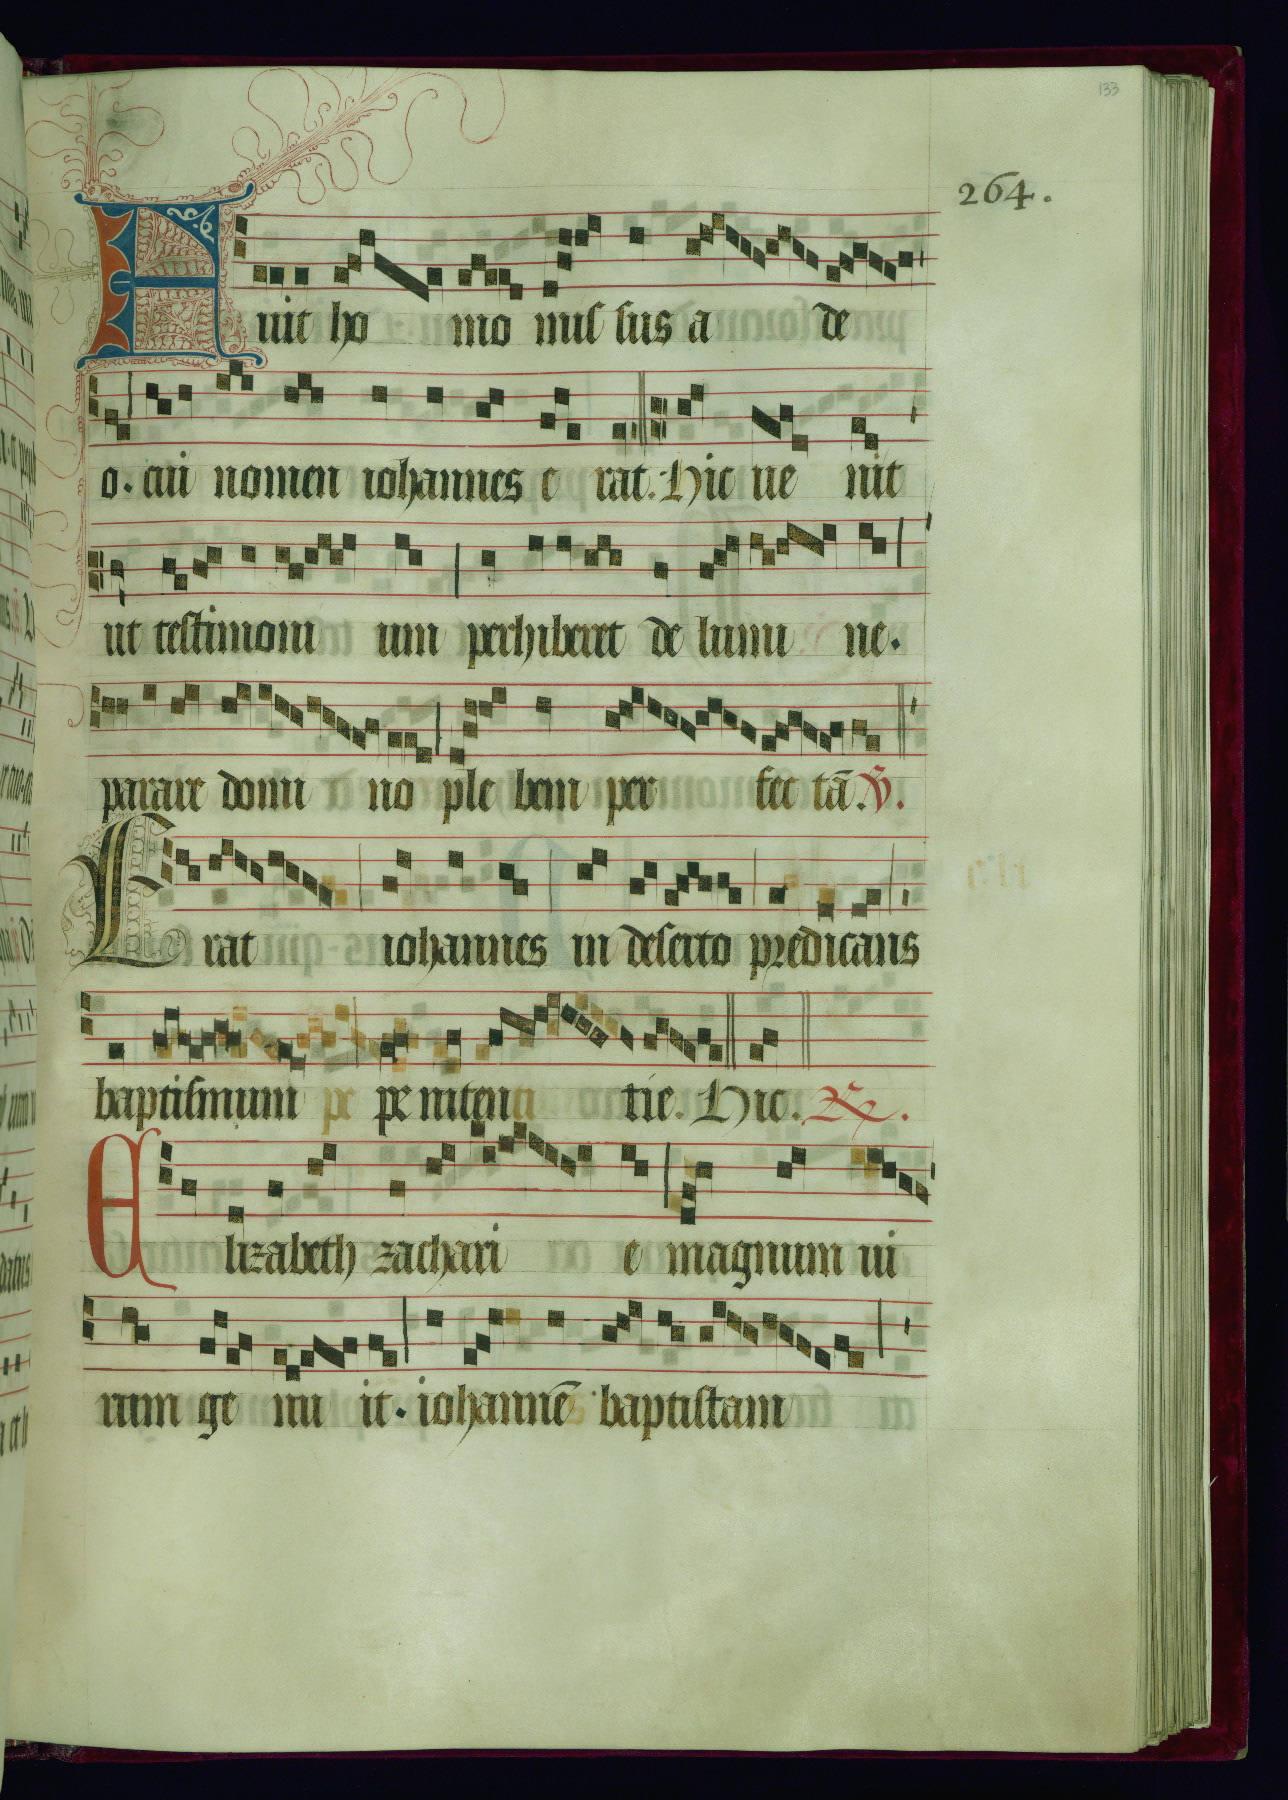 133
264.
Fuit ho mo mis sus a de
o. cui nomen iohannes e rat. Hic ue nit
ut testimoni um perhiberet de lumi ne.
parare domi no ple bem per fec tā. V.
Erat iohannes in deserto predicans
baptismum pe penitenci tie. Hic. R.
Elizabeth zachari e magnum ui
rum ge nu it. iohannē baptistam